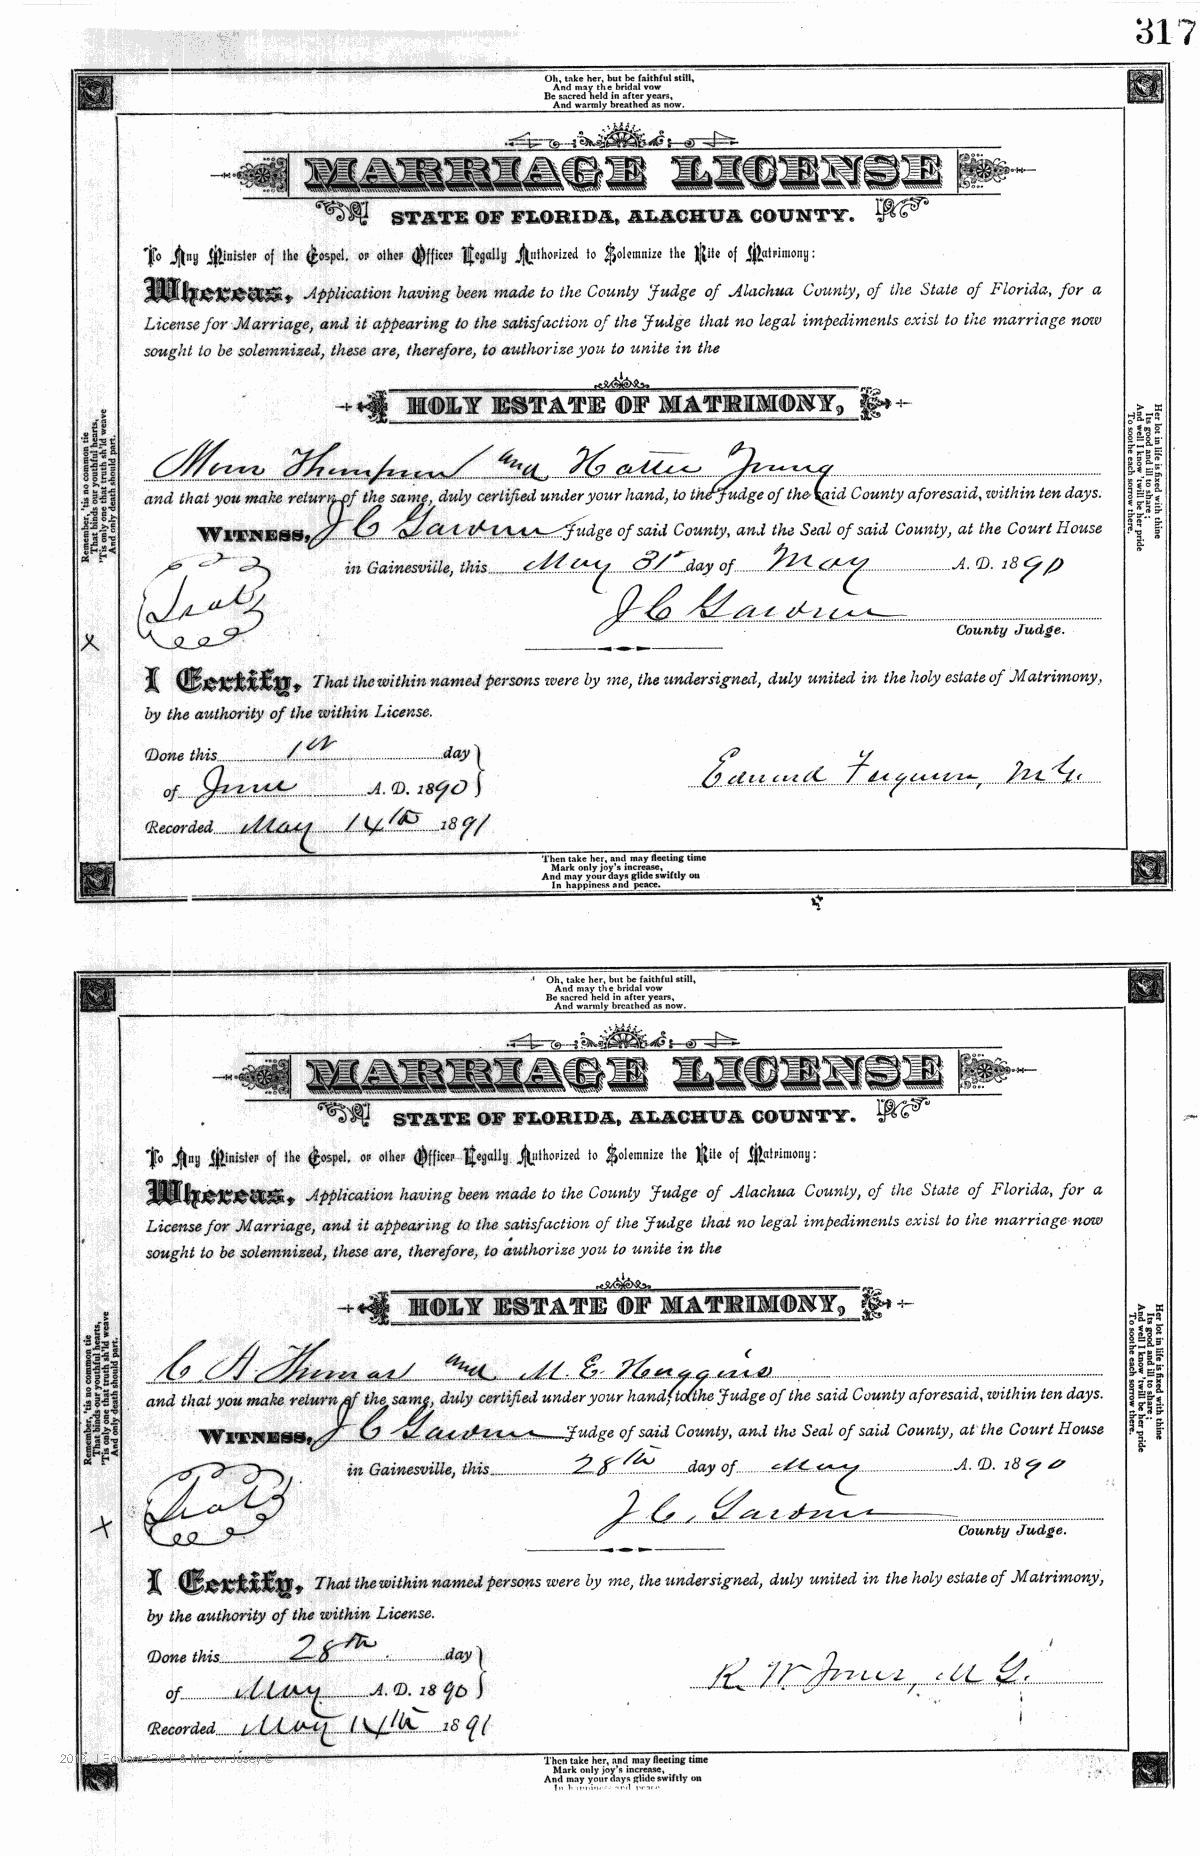 317
Oh, take her, but be faithful still,
And may the bridal vow
Be sacred held in after years,
And warmly breathed as now.
MARRIAGE LICENSE
STATE OF FLORIDA, ALACHUA COUNTY.
To Any Minister of the Gospel, or other Officer Legally Authorized to Solemnize the Rite of Matrimony:
Whereas, Application having been made to the County Judge of Alachua County, of the State of Florida, for a
License for Marriage, and it appearing to the satisfaction of the Judge that no legal impediments exist to the marriage now
sought to be solemnized, these are, therefore, to authorize you to unite in the
HOLY ESTATE OF MATRIMONY,
Thompson and Hattie Young
and that you make return of the same, duly certified under your hand, to the Judge of the said County aforesaid, within ten days.
WITNESS, J C Gardner Judge of said County, and the Seal of said County, at the Court House
in Gainesville, this May 31st day of May A. D. 1890
Seal
J C Gardner
County Judge.
X
I Certify, That the within named persons were by me, the undersigned, duly united in the holy estate of Matrimony,
by the authority of the within License.
Done this 1st day
of June A. D. 1890
Edward Ferguson, M.G.
Recorded May 14th 1891
Then take her, and may fleeting time
Mark only joy's increase,
And may your days glide swiftly on
In happiness and peace.
Remember, 'tis no common tie
That binds our youthful hearts,
'Tis only one that truth sh'ld weave
And only death should part.
Her lot in life is fixed with thine
Its good and ill to share;
And well I know 'twill be her pride
To soothe each sorrow there.
Oh, take her, but be faithful still,
And may the bridal vow
Be sacred held in after years,
And warmly breathed as now.
MARRIAGE LICENSE
STATE OF FLORIDA, ALACHUA COUNTY.
To Any Minister of the Gospel, or other Officer Legally Authorized to Solemnize the Rite of Matrimony:
Whereas, Application having been made to the County Judge of Alachua County, of the State of Florida, for a
License for Marriage, and it appearing to the satisfaction of the Judge that no legal impediments exist to the marriage now
sought to be solemnized, these are, therefore, to authorize you to unite in the
HOLY ESTATE OF MATRIMONY,
C A Thomas and M. E. Huggins
and that you make return of the same, duly certified under your hand, to the Judge of the said County aforesaid, within ten days.
WITNESS, J C Gardner Judge of said County, and the Seal of said County, at the Court House
in Gainesville, this 28th day of May A. D. 1890
Seal
J. C. Gardner
County Judge.
X
I Certify, That the within named persons were by me, the undersigned, duly united in the holy estate of Matrimony,
by the authority of the within License.
Done this 28th day
of May A. D. 1890
R. W. Jones, M G.
Recorded May 14th 1891
Then take her, and may fleeting time
Mark only joy's increase,
And may your days glide swiftly on
In happiness and peace.
Remember, 'tis no common tie
That binds our youthful hearts,
'Tis only one that truth sh'ld weave
And only death should part.
Her lot in life is fixed with thine
Its good and ill to share;
And well I know 'twill be her pride
To soothe each sorrow there.